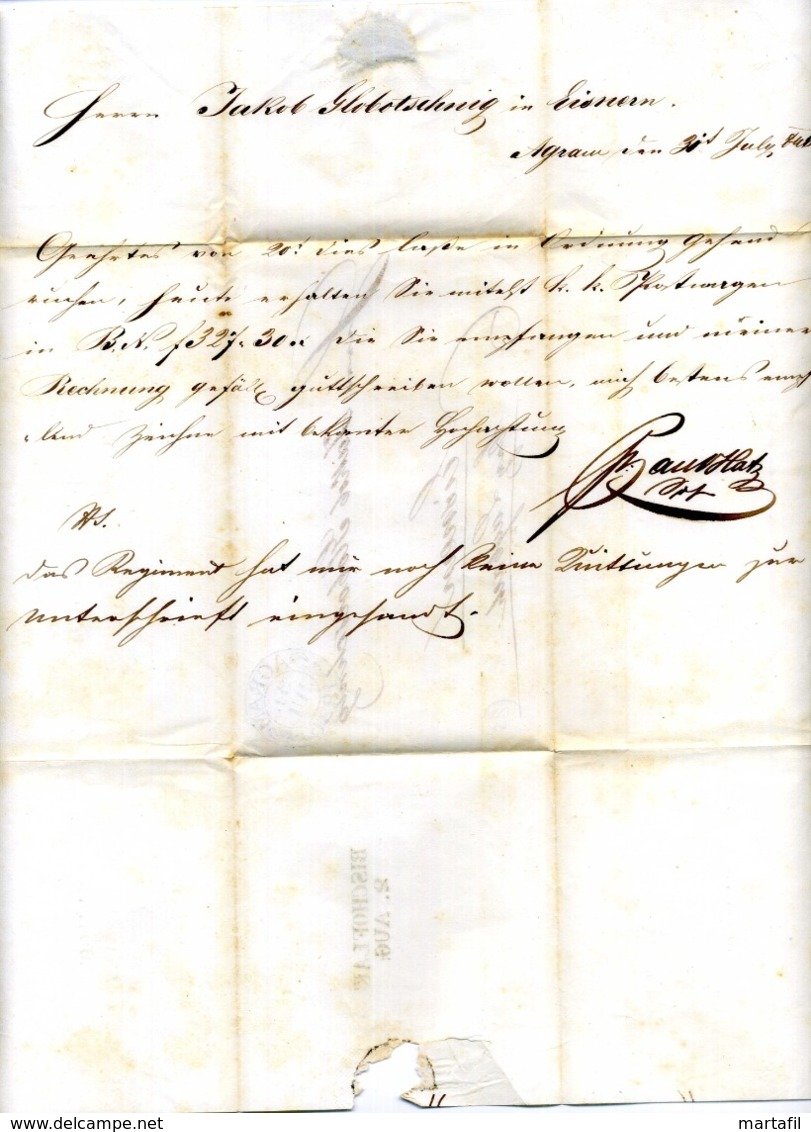 Herrn Jakob Globotschnig in Eisnern.
Agram, den 30t July
Geehrtes von 20t dies laße in Ordnung gehend
ruhen, heute erhalten Sie mitelst k. k. Postwagen
in B.N. f 327„30x die Sie empfangen und meiner
Rechnung gefäll guttschreiben wollen, mich bestens empf
„lend zeichne mit bekanter Hochachtung
NS.
das Regiment hat mir noch keine Quittungen zur
unterschrift eingesandt.
BISCHOFLAK
2. AUG:
martafil